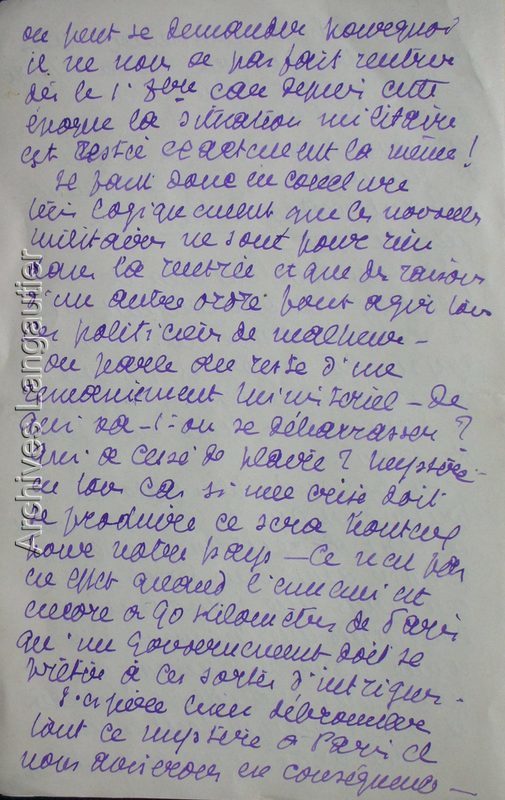 on peut se demander pourquoi
il ne nous a pas fait rentrer
dès le 1er 9bre car depuis cette
époque la situation militaire
est restée exactement la même !
Je puis donc en conclure
très logiquement que les nouvelles
militaires ne sont pour rien
dans la rentrée et que des raisons
d'un autre ordre font agir tous
ces politiciens de malheur -
On parle du reste d'une
remaniement ministeriel - De
qui va-t-on se débarrasser ?
qui a cessé de plaire ? mystère -
en tous cas si une crise doit
se produire ce sera honteux
pour notre pays - Ce n'est pas
en effet quand l'ennemi est
encore à 90 kilomètres de Paris
qu'un Gouvernement doit se
prêter à ces sortes d'intrigues -
J'espère bien débrouiller
tout ce mystère à Paris et
nous aviserons en conséquence -
Archives Langautier